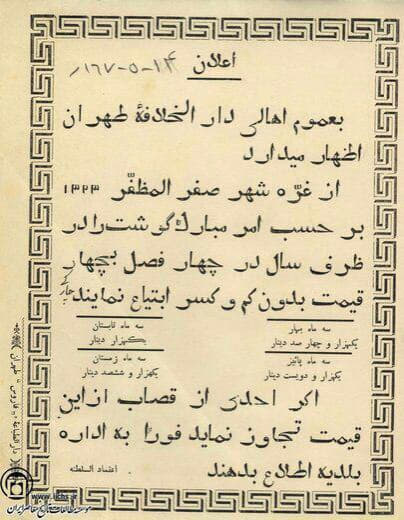 اعلان
۱۶۷-۵-۱۴
بعموم اهالی دار الخلافهٔ طهران
اظهار میدارد
از غرّه شهر صفر المظفّر ۱۳۲۳
بر حسب امر مبارک گوشت را در
ظرف سال در چهار فصل بچهار
قیمت بدون کم و کسر ابتیاع نمایند
سه ماه بهار
یکهزار و چهار صد دینار
سه ماه تابستان
یکهزار دینار
سه ماه پائیز
یکهزار و دویست دینار
سه ماه زمستان
یکهزار و ششصد دینار
اکر احدی از قصاب ازاین
قیمت تجاوز نماید فوراً به اداره
بلدیه اطلاع بدهند
اعتماد السلطنه
دار الطباعهٔ فاروس طهران
www.iichs.ir
موسسه مطالعات تاریخ معاصر ایران